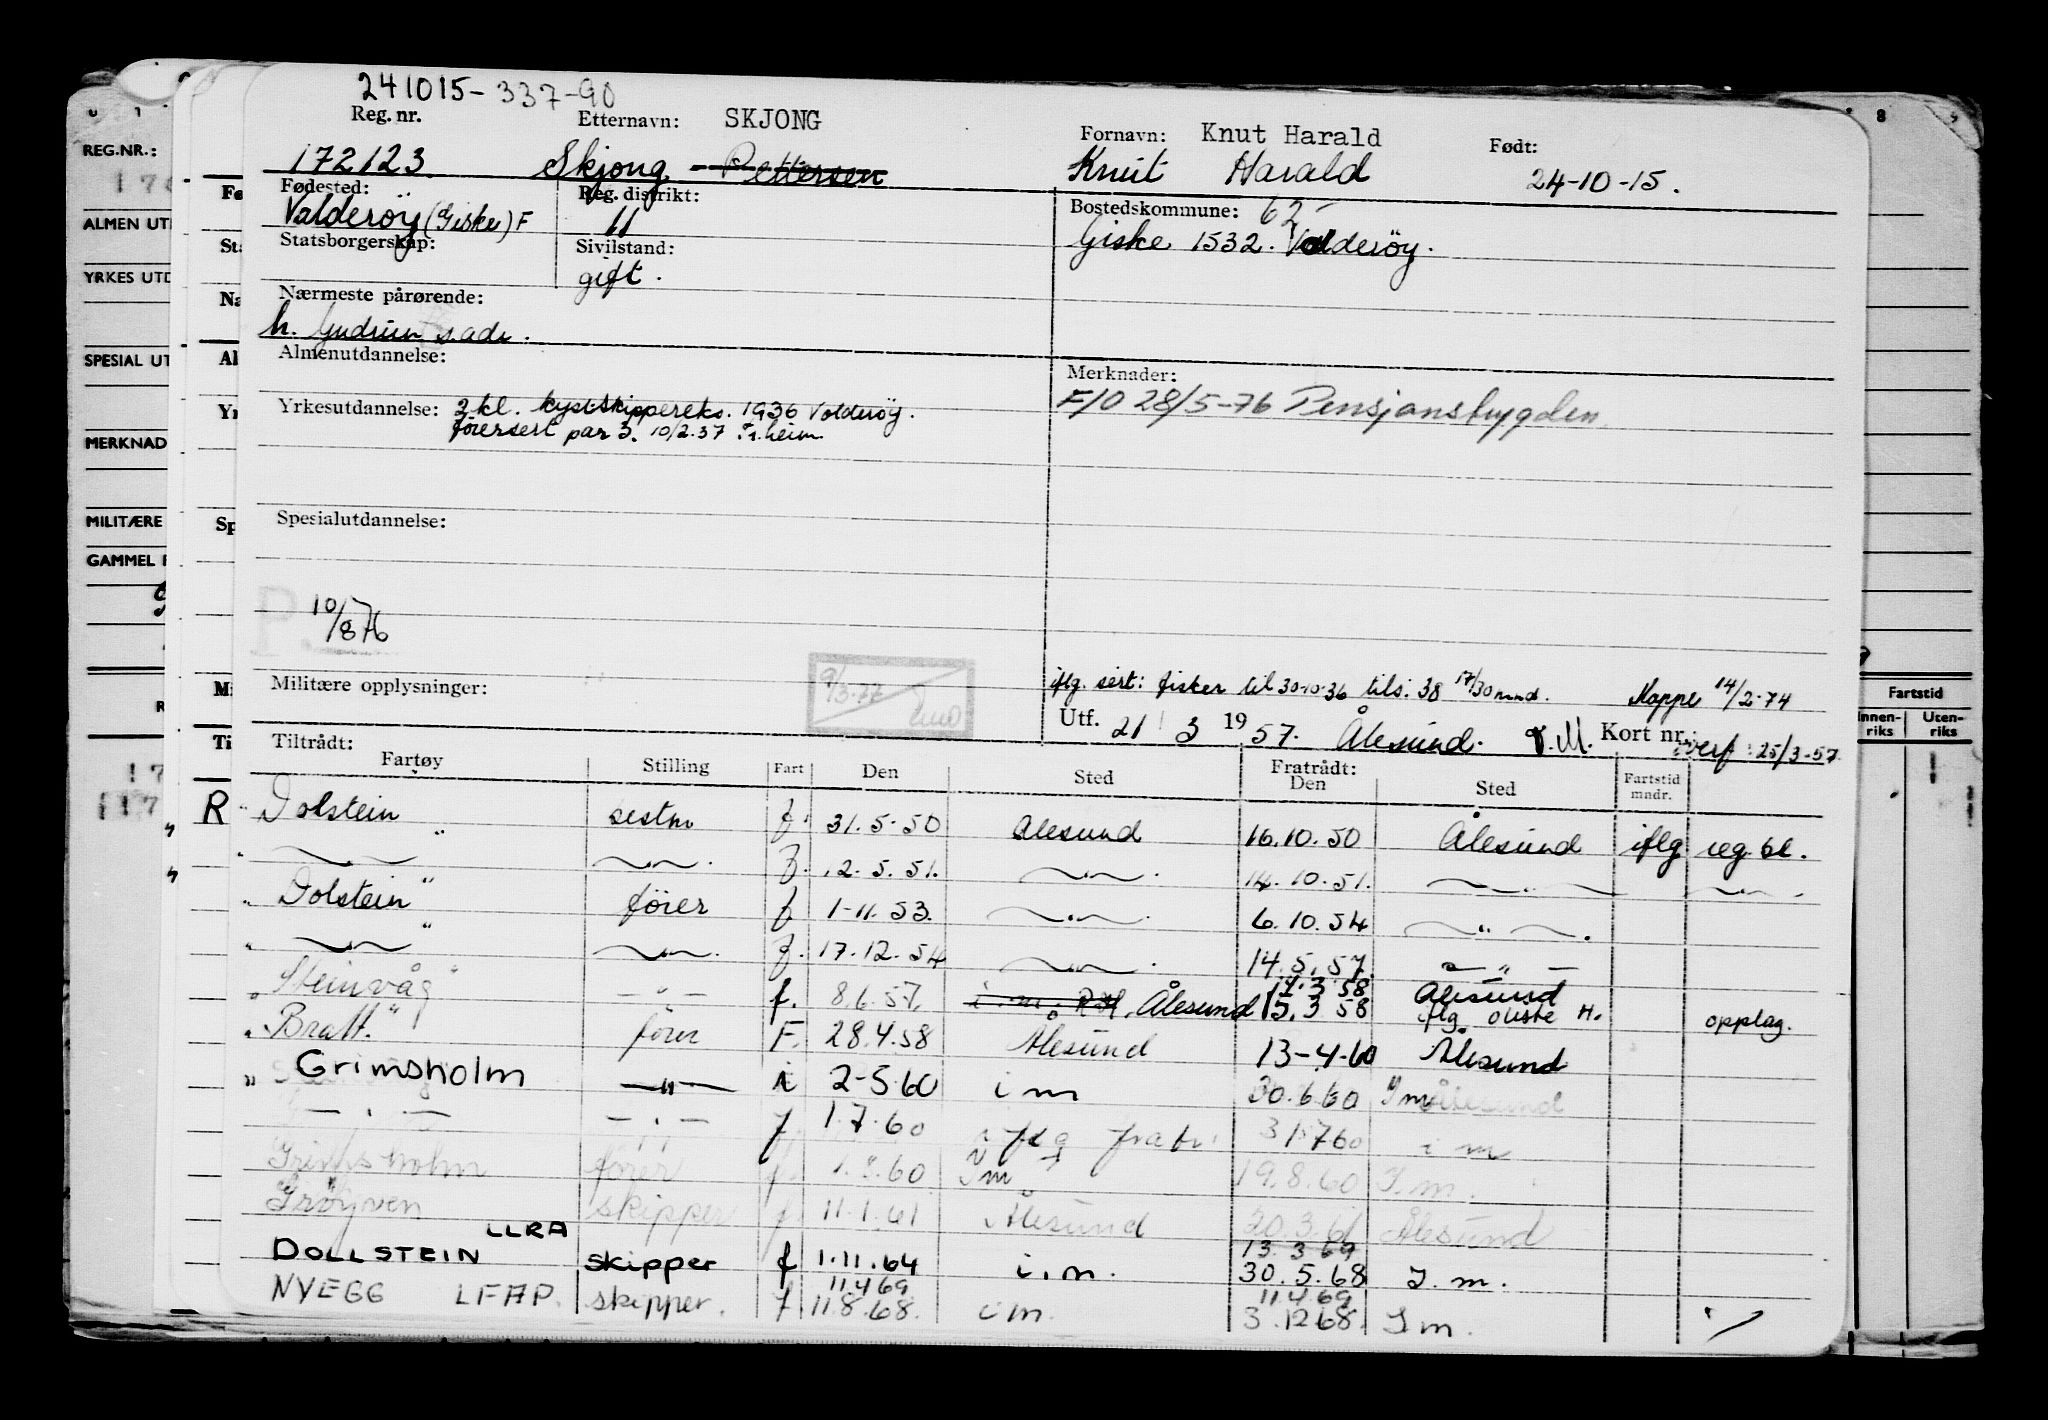 241015-337-90
Reg. nr. Etternavn: SKJONG Fornavn: Knut Harald Født:
172123 Skjong - Pettersen Knut Harald 24-10-15.
Fødested: Reg. distrikt: Bostedskommune: 62
Valderøy (Giske) F 11 Giske 1532. Valderøy.
Statsborgerskap: Sivilstand:
gift.
Nærmeste pårørende:
h. Gudrun s.adr.
Almenutdannelse: Merknader:
F/O 28/5-76 Pensjonstrygden
Yrkesutdannelse: 2 kl. kystskippereks. 1936 Valderøy.
førersert par 3. 10/2.37 Tr.heim
Spesialutdannelse:
10/876
9/3-77
Militære opplysninger: iflg. sert: fisker til 30-10-36 tils: 38 17/30 mnd. Mappe 14/2-74
Utf. 21 / 3 1957. Ålesund. V.M. Kort nr. overf 25/3-57
Tiltrådt: Fratrådt:
Fartøy Stilling Fart Den Sted Den Sted Fartstid mndr.
R "Dolstein" sestm f. 31.5-50 Ålesund 16.10.50 Ålesund iflg reg. bl.
" — " — " — " — f. 12.5.51. — " — 14.10.51. — " — — " —
"Dolstein" fører f 1-11.53. — " — 6.10.54 — " —
" — " — " — " — f. 17.12.54 — " — 14.5.57. — " —
"Steinvåg" — " — f. 8.6.57. i.m. Ålesund 14.3 58 Ålesund
15.3 58 iflg. H. opplag.
"Bratt." fører F. 28.4.58 Ålesund 13-4-60 Ålesund
" Grimsholm — " — i 2-5.60 i m 30.6.60 I m
— " — — " — f 1.7.60 iflg fratr. 31 7 60 i m
Grimsholm fører f. 1.8.60 I m 19.8.60 I.m.
Trøyven skipper f. 11.1.61 Ålesund 20.3.61 Ålesund
LLRA 13.3 69
DOLLSTEIN skipper f 1.11.64 i.m. 30.5.68 I.m.
11.4 69 11.4.69
NYEGG LFAP. skipper. f 11.8.68. i m. 3.12 68. I m.
REG.NR.:
ALMEN UT
YRKES UTD
SPESIAL UT
MERKNAD
MILITÆRE
GAMMEL
Fartstid
Innen-riks Uten-riks